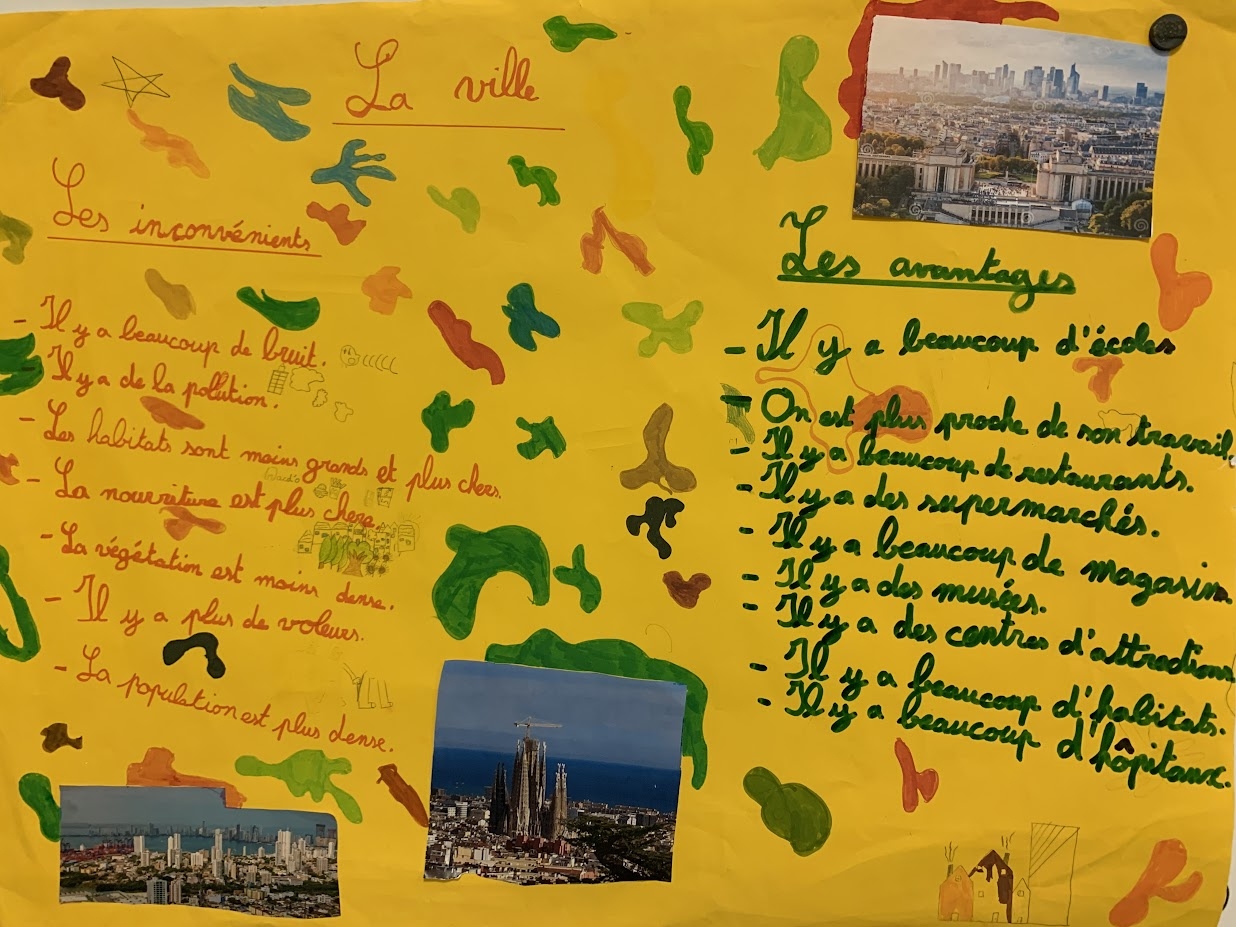 La ville
Les inconvénients
- Il y a beaucoup de bruit.
- Il y a de la pollution.
- Les habitats sont moins grands et plus chers.
- La nourriture est plus chere.
- La végétation est moins dense.
- Il y a plus de voleurs.
- La population est plus dense.
Les avantages
- Il y a beaucoup d'écoles
- On est plus proche de son travail.
- Il y a beaucoup de restaurants.
- Il y a des supermarchés.
- Il y a beaucoup de magasin.
- Il y a des musées.
- Il y a des centres d'attractions
- Il y a beaucoup d'habitats.
- Il y a beaucoup d'hôpitaux.